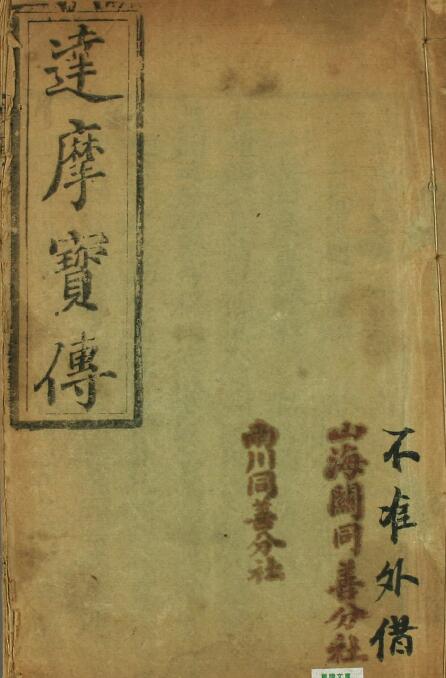 不准外借
山海關同善分社
川同善分社
達摩寶傳
文庫